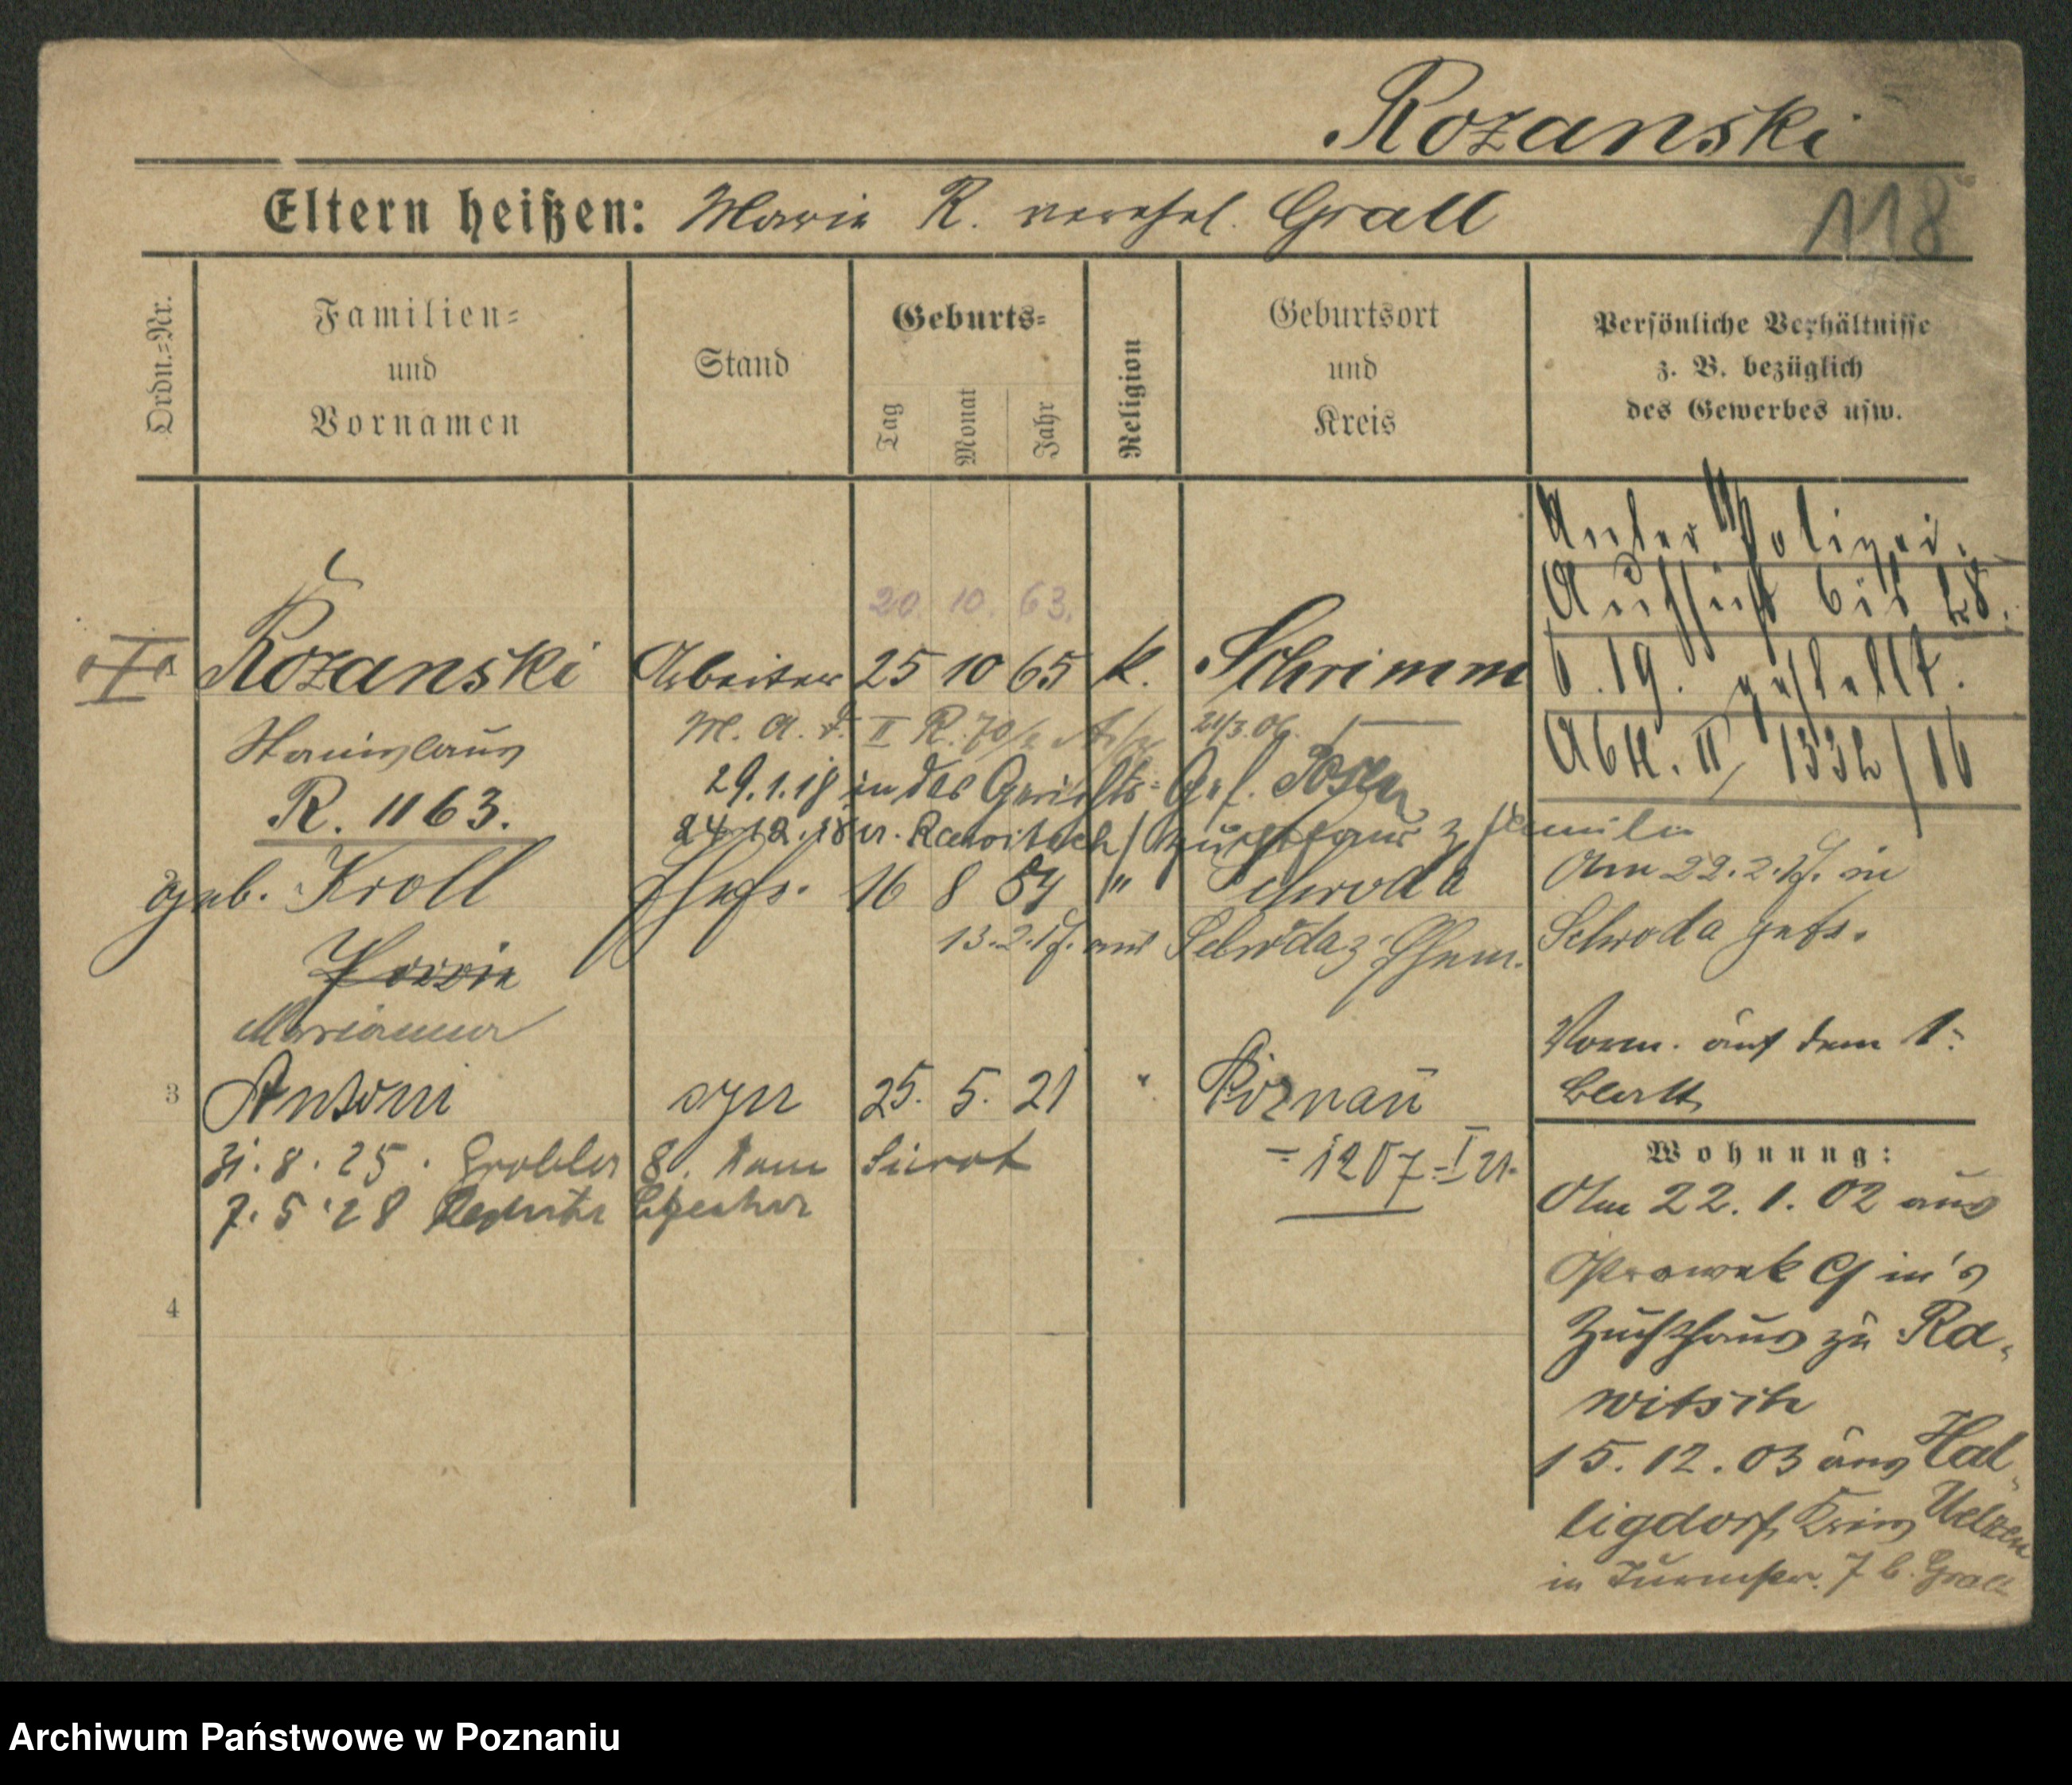 Rozanski
Eltern heißen: Marie R. verehel. Grall
118
Ordn.=Nr.
Familien=
und
Vornamen
Stand
Geburts=
Tag
Monat
Jahr
Religion
Geburtsort
und
Kreis
Persönliche Verhältnisse
z. B. bezüglich
des Gewerbes usw.
Unter Polizei
Aufsicht bis 28.
6. 19. gestellt.
Abtl. II, 1332/16
20. 10. 63.
1 Rozanski Arbeiter 25 10 65 k. Schrimm
Stanislaus
R. 1163.
M. A. II R. 70/2 21/3.06.
29.1.18 in das Gerichts=Gef. Posen
24.12.18 v. Rawitsch / Zuchthaus z Familie
2 geb. Kroll Ehefr. 16 8 84 " Schroda
Am 22.2.17. in
Schroda geh.
13.2.17. aus Schroda z. Ehem.
Marianna
Vorm. auf dem 1.
Blatt
3 Antoni syn 25. 5. 21 " Poznań
= 1207-I 21.
31.8.25. Grobla 8. tam
7.5.28
4
Wohnung:
Am 22. 1. 02 aus
in's
Zuchthaus zu Ra-
witsch
15. 12. 03 aus Hal-
ligdorf, Kreis Uelzen
in Turmstr. 7 b. Grall
Archiwum Państwowe w Poznaniu